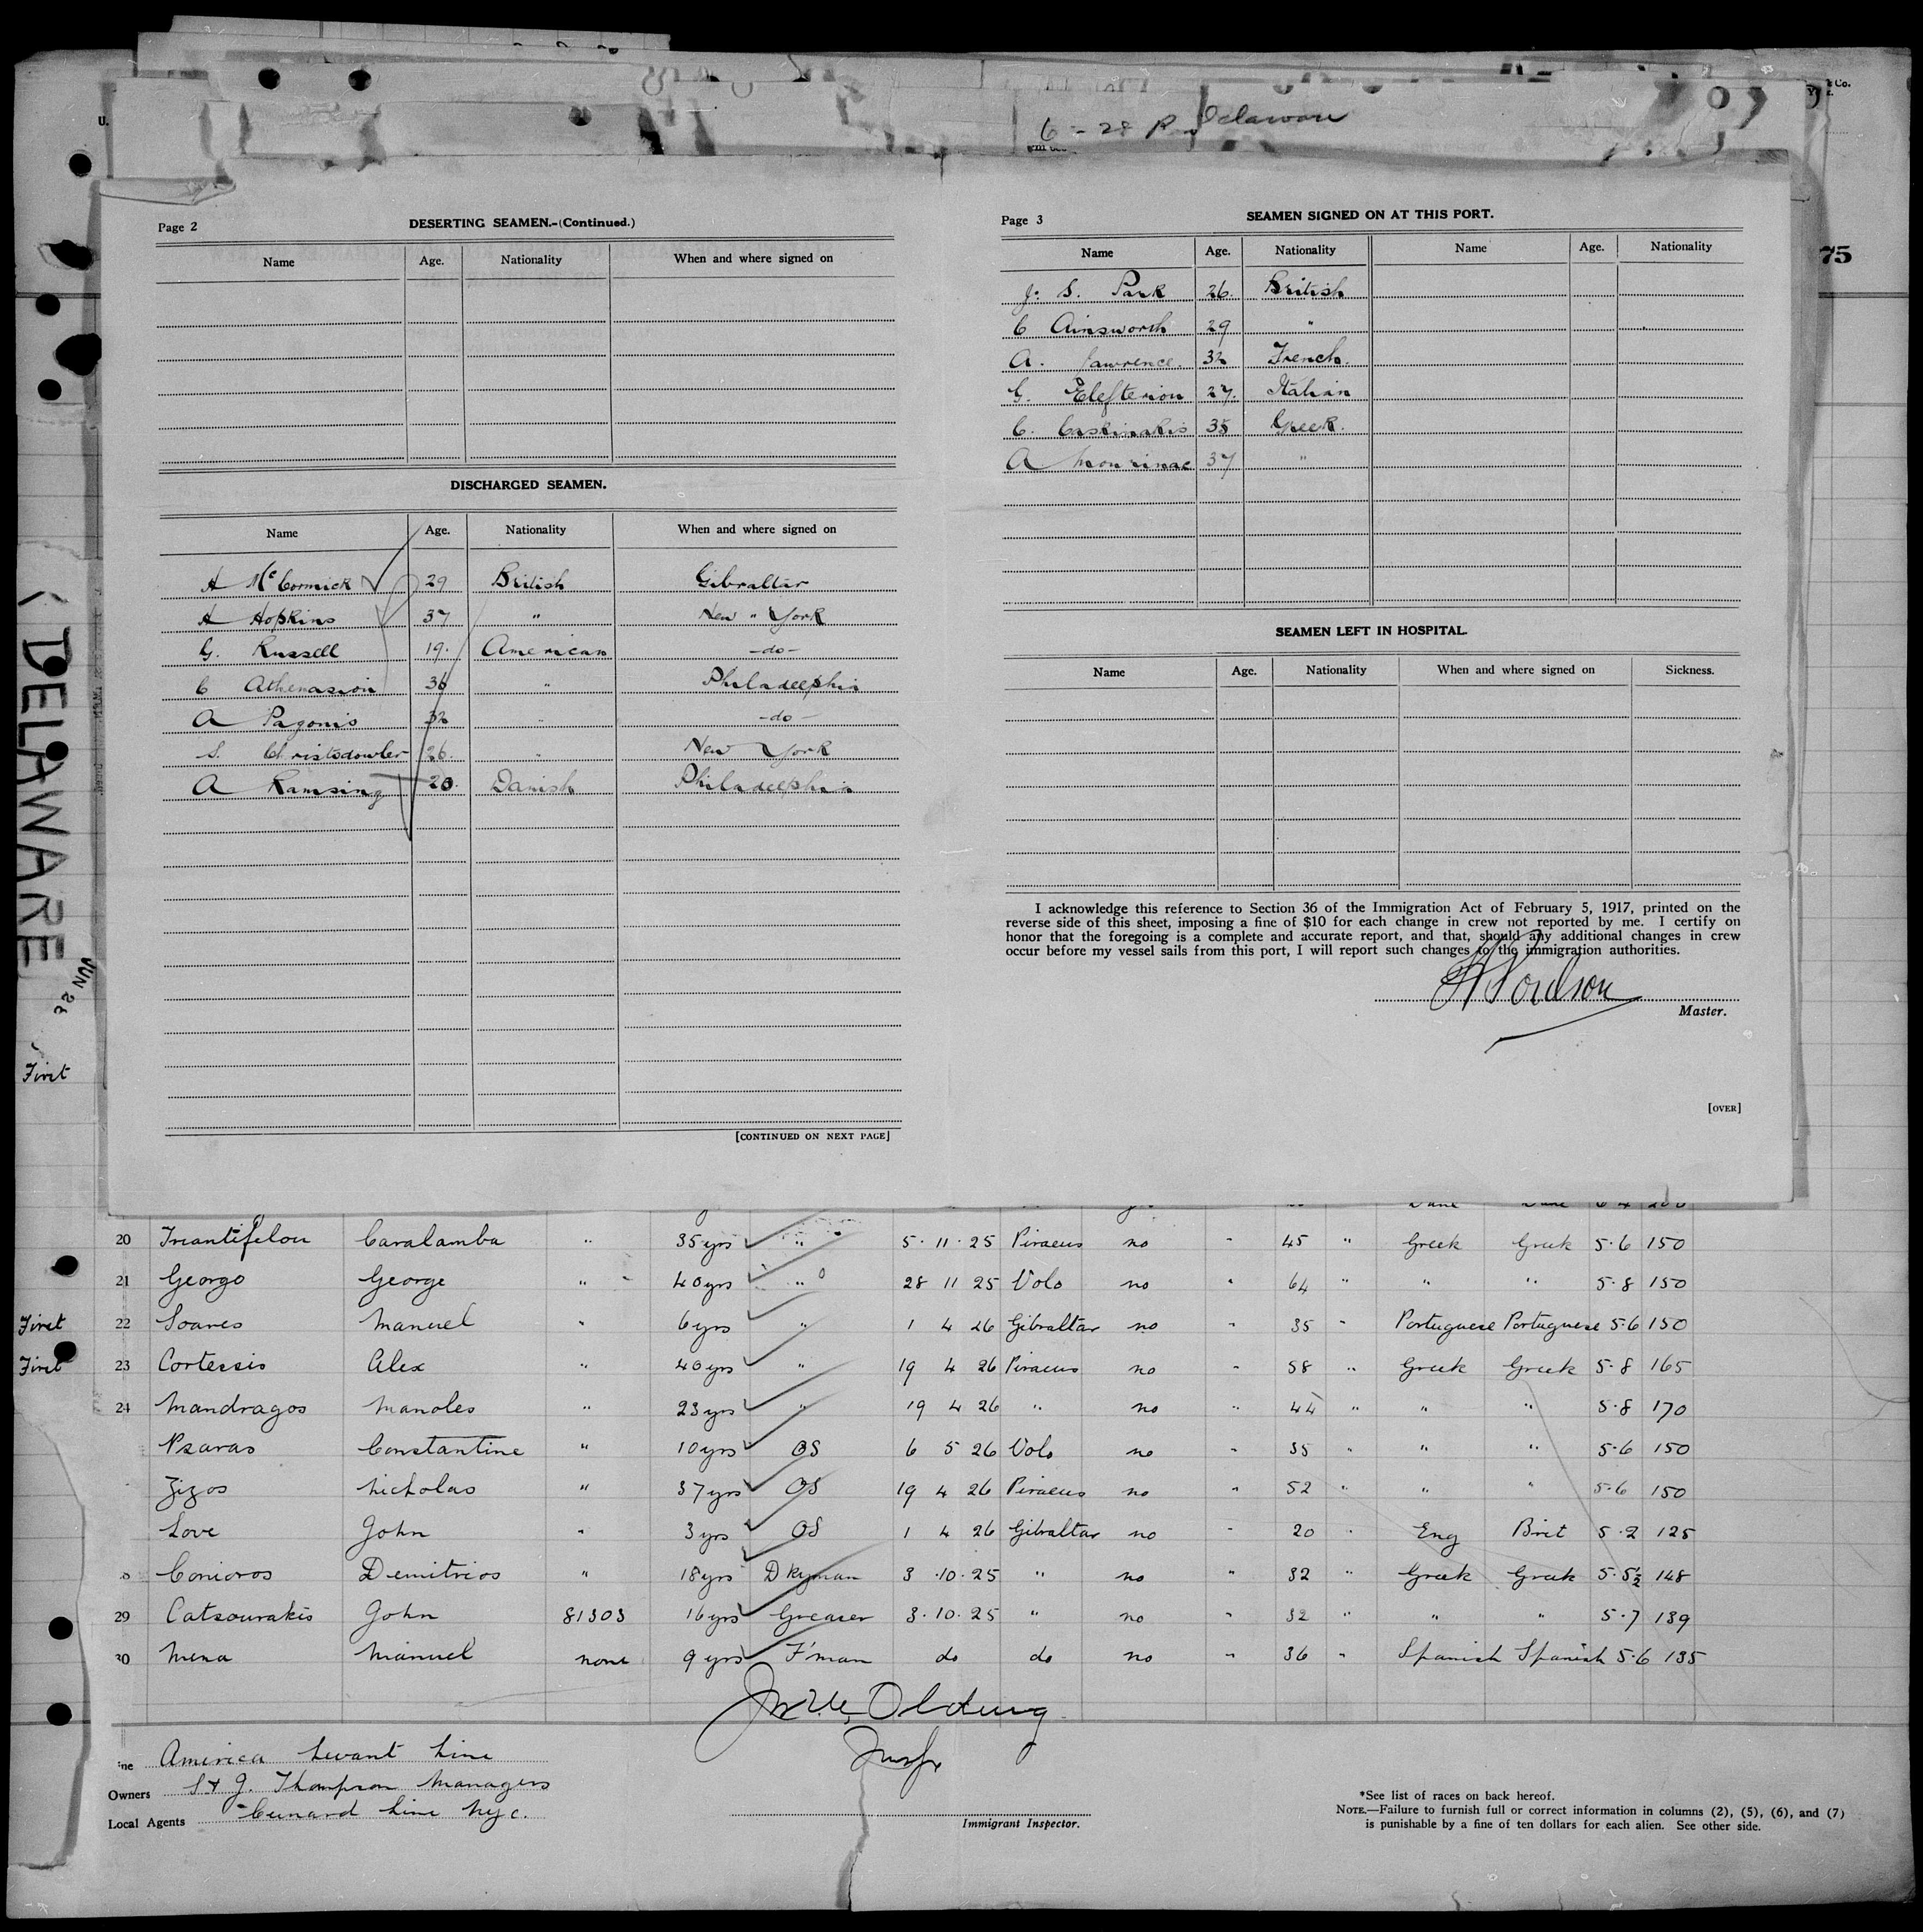 6 - 28 Delaware
75
Page 2
DESERTING SEAMEN.-(Continued.)
Name Age. Nationality When and where signed on
DISCHARGED SEAMEN.
Name Age. Nationality When and where signed on
A McCormick 29 British Gibraltar
A Hopkins 37 " New " York
G. Russell 19. American -do-
C Athenasion 36 " Philadelphia
A Pagonis 32 " -do-
S. Christodowler 26. " New York
A Ramsing 20. Danish Philadelphia
[CONTINUED ON NEXT PAGE]
Page 3
SEAMEN SIGNED ON AT THIS PORT.
Name Age. Nationality Name Age. Nationality
J. S. Park 26. British
C Ainsworth 29 "
A. Lawrence. 32 French.
G. Elefterion 27. Italian
C. Caskinakis 35 Greek.
A 37 "
SEAMEN LEFT IN HOSPITAL.
Name Age. Nationality When and where signed on Sickness.
I acknowledge this reference to Section 36 of the Immigration Act of February 5, 1917, printed on the
reverse side of this sheet, imposing a fine of $10 for each change in crew not reported by me. I certify on
honor that the foregoing is a complete and accurate report, and that, should any additional changes in crew
occur before my vessel sails from this port, I will report such changes to the immigration authorities.
Master.
[OVER]
DELAWARE
JUN 28
First
20 Triantifelou Caralamba " 35 yrs " 5 · 11 · 25 Piraeus no " 45 " Greek Greek 5·6 150
21 Georgo George " 40 yrs " 28 11 25 Volo no " 64 " " " 5·8 150
First 22 Soares Manuel " 6 yrs " 1 4 26 Gibraltar no " 35 " Portuguese Portuguese 5·6 150
First 23 Cortessis Alex " 40 yrs " 19 4 26 Piraeus no " 58 " Greek Greek 5·8 165
24 Mandragos Manoles " 23 yrs " 19 4 26 " no " 44 " " " 5·8 170
Psaras Constantine " 10 yrs OS 6 5 26 Volo no " 35 " " " 5·6 150
Zizos Nicholas " 37 yrs OS 19 4 26 Piraeus no " 52 " " " 5·6 150
Love John " 3 yrs OS 1 4 26 Gibraltar no " 20 " Eng Brit 5·2 125
Conioros Demitrios " 18 yrs Dkyman 3 · 10 · 25 " no " 32 " Greek Greek 5·5½ 148
29 Catsourakis John 81303 16 yrs Greaser 3 · 10 · 25 " no " 32 " " " 5·7 139
30 Mena Manuel none 9 yrs F'man do do no " 36 " Spanish Spanish 5·6 135
America Levant Line
Owners S & J. Thompson Managers
Local Agents Cunard Line N.Y.C.
Immigrant Inspector.
*See list of races on back hereof.
NOTE.—Failure to furnish full or correct information in columns (2), (5), (6), and (7)
is punishable by a fine of ten dollars for each alien. See other side.